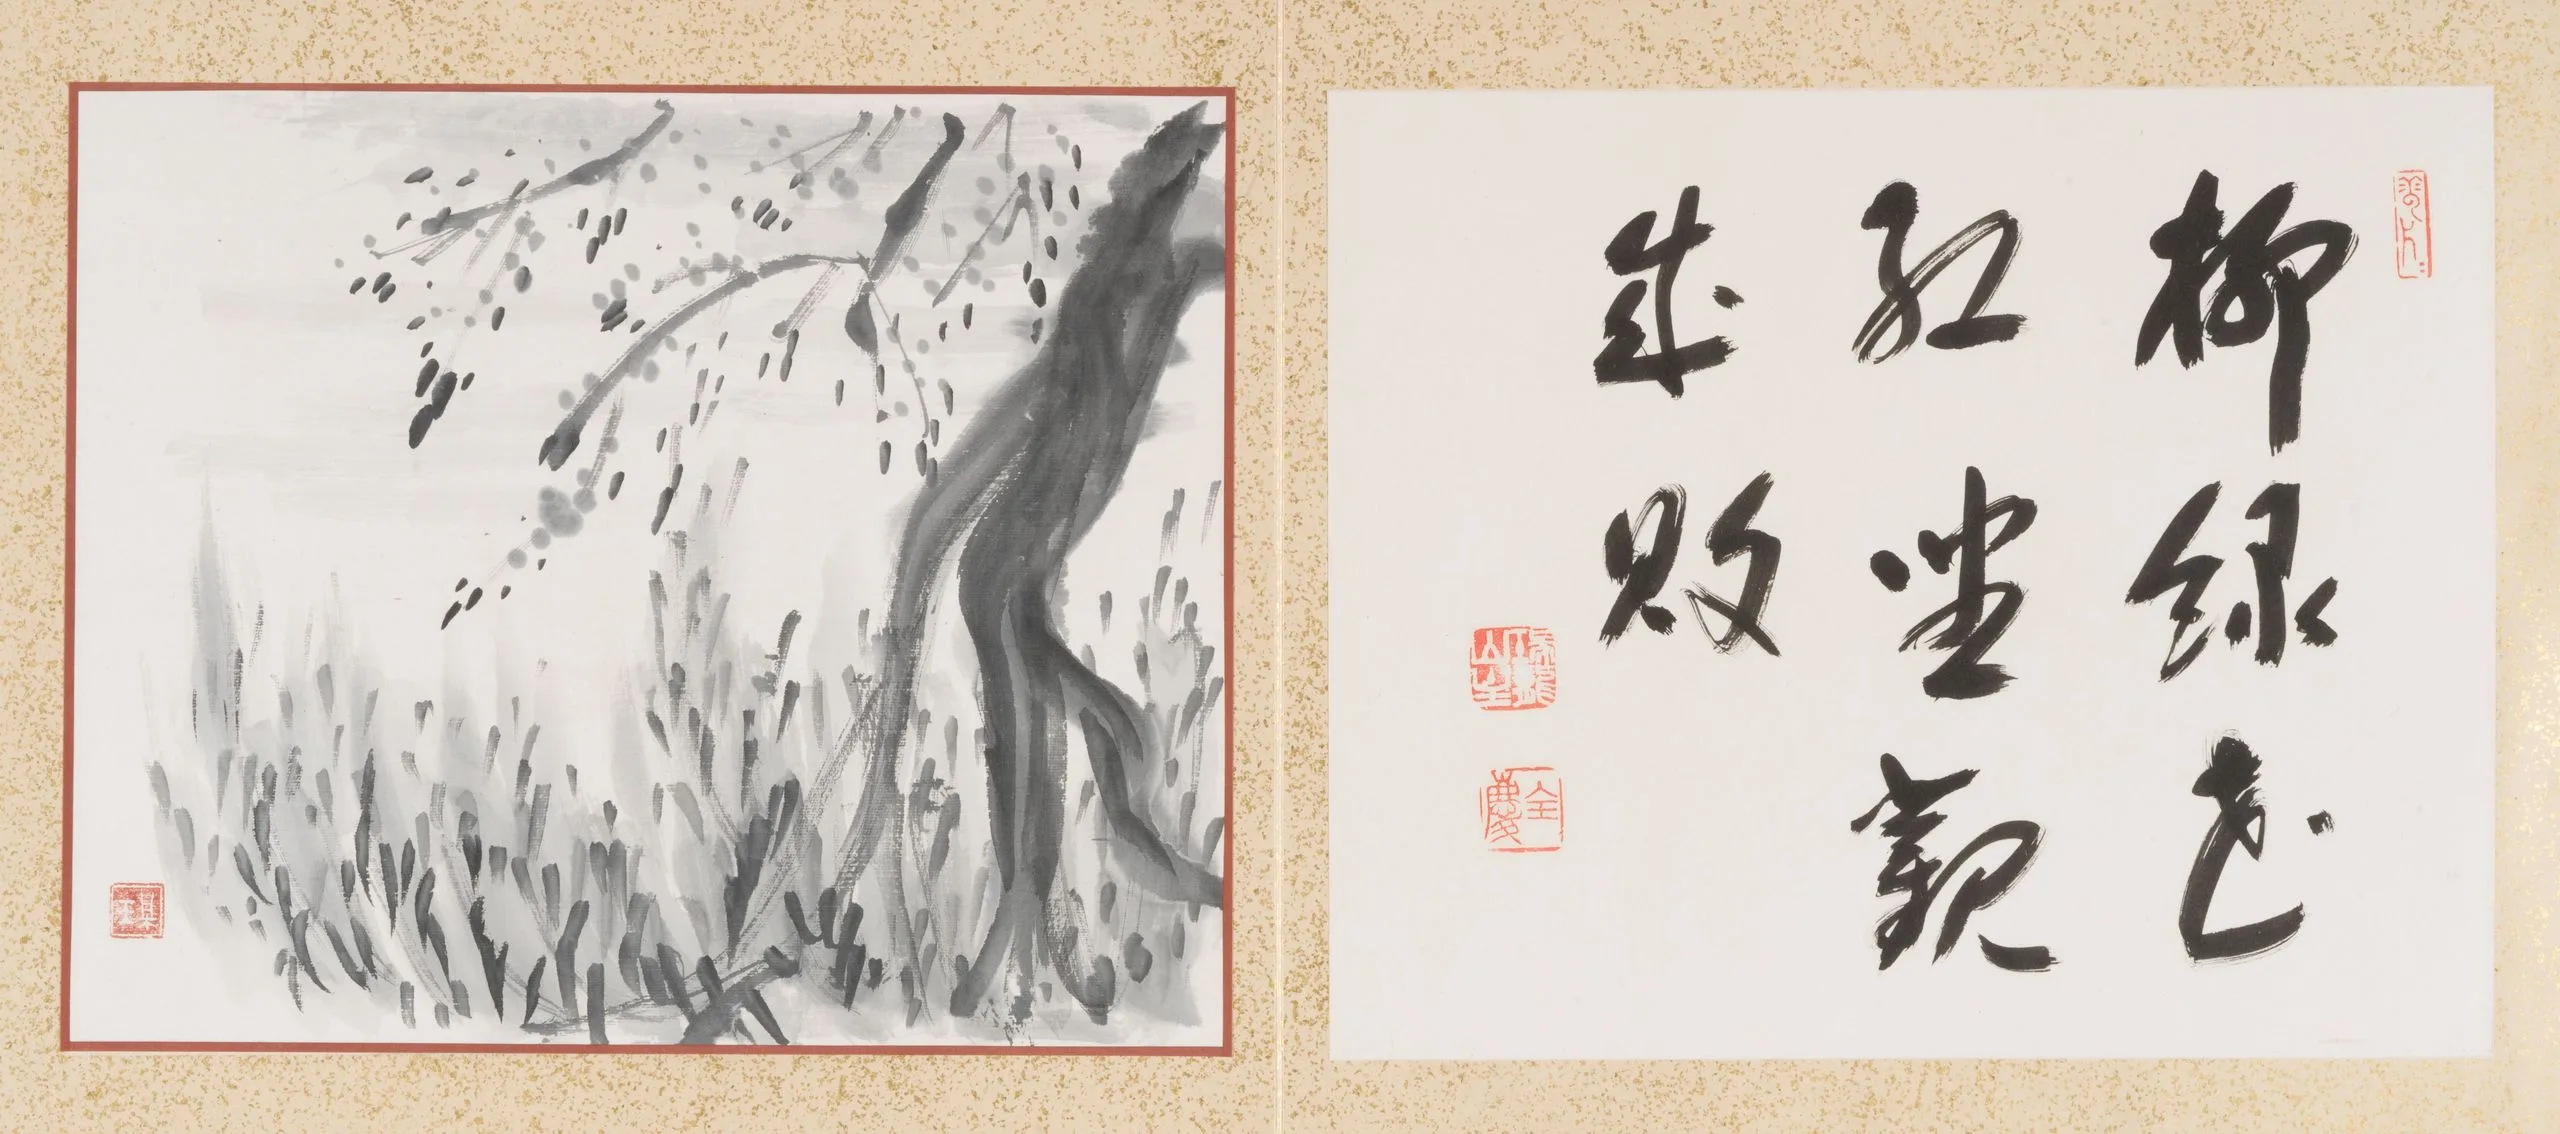 柳緑花
紅坐観
成敗
全慶